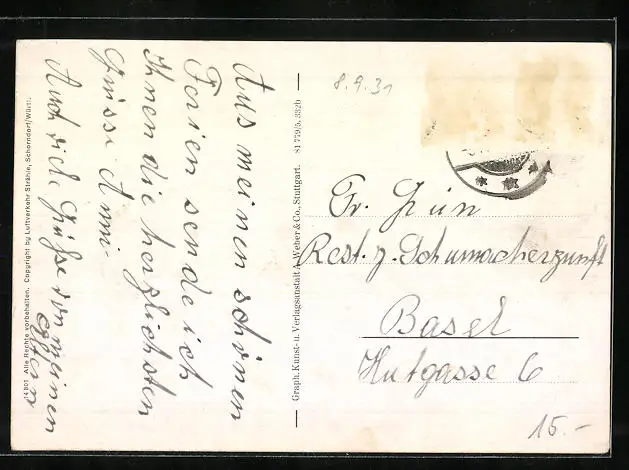 Aus meinen schönen
Ferien sende ich
Ihnen die herzlichsten
Grüsse Anni-
Auch viele Grüße von meinen
Eltern
14801 Alle Rechte vorbehalten. Copyright by Luftverkehr Strähle, Schorndorf/Württ.
Graph. Kunst- u. Verlagsanstalt A. Weber & Co., Stuttgart. 81 779/5. 332b
8.9.31
Fr.
Rest. z. Schumacherzunft
Basel
Hutgasse 6
15.-